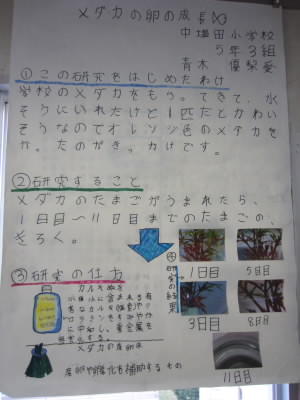 メダカの卵の成長
中場田小学校
5年3組
青木 優梨愛
①この研究をはじめたわけ
学校のメダカをもらってきて、水
そうにいれたけど1匹だとかわい
そうなのでオレンジ色のメダカを
か
たのがき
かけです。
②研究すること
メダカのたまごがうまれたら、
1日目〜11日目までのたまごの、
きろく。
③研究の仕方
メダカの産卵床
産卵や孵化を補助するもの
④研究の結果
1日目
5日目
3日目
8日目
11日目